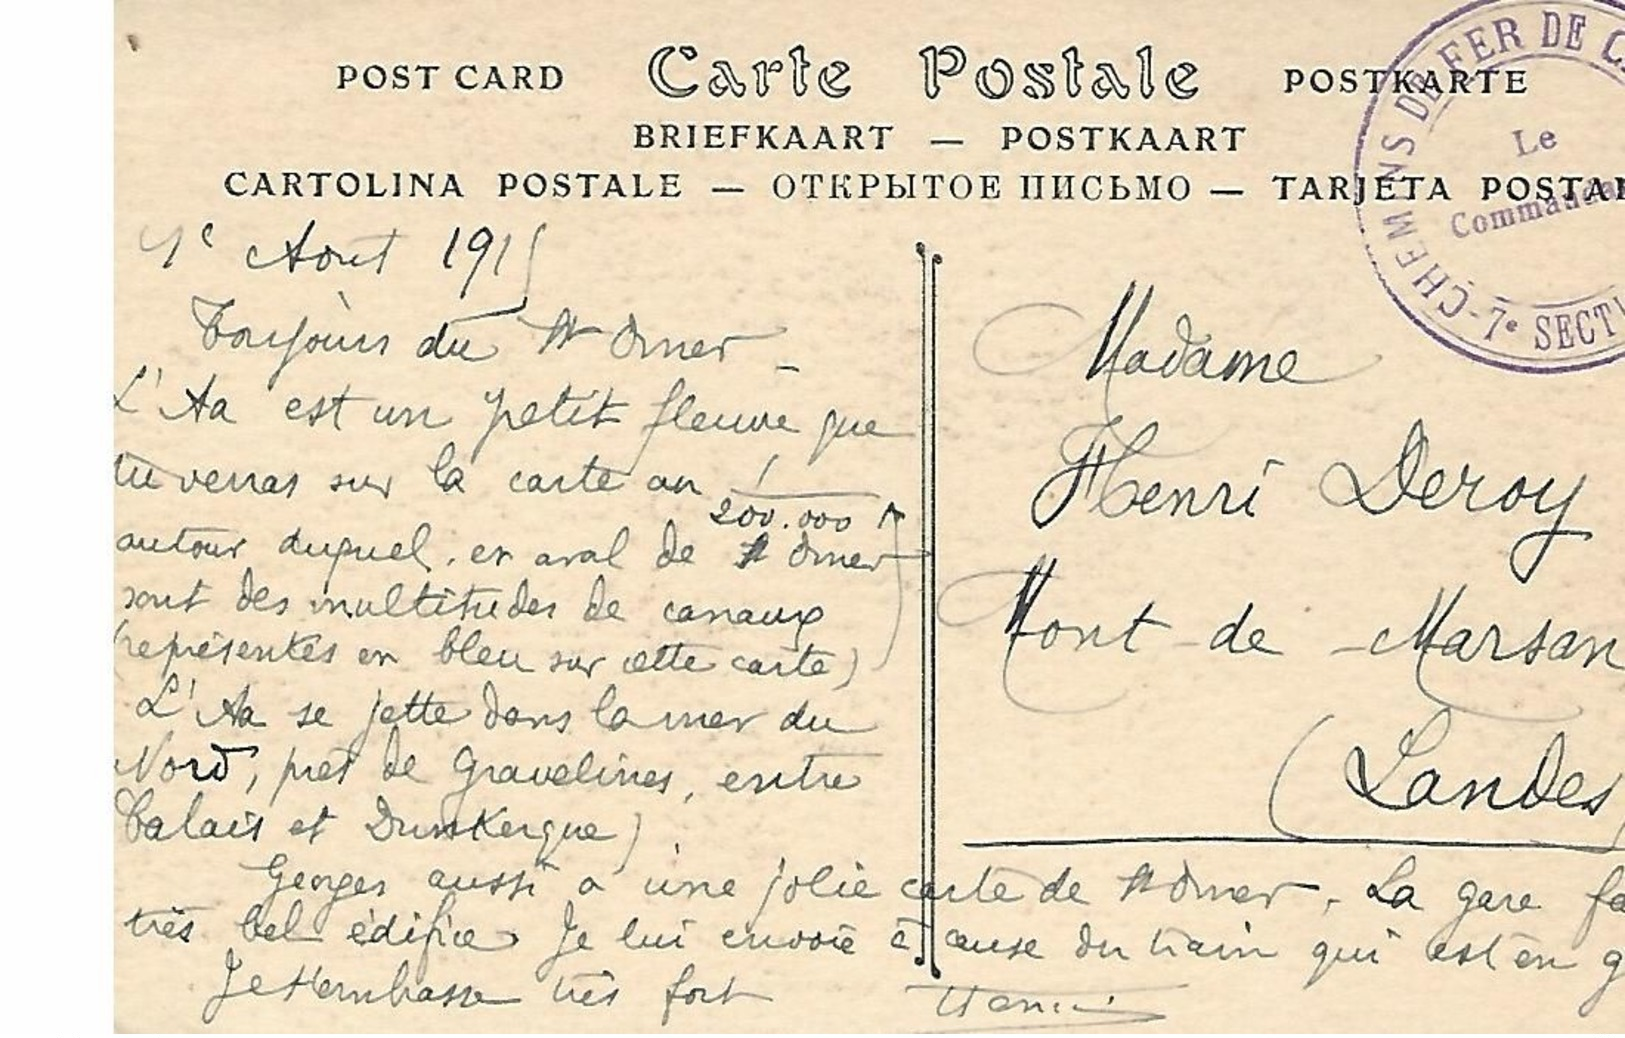 POST CARD Carte Postale POSTKARTE
BRIEFKAART — POSTKAART
CARTOLINA POSTALE — ОТКРЫТОЕ ПИСЬМО — TARJETA POSTAL
CHEMINS DE FER DE CA
Le
Commandan
7e SECTI
Aout 1915
Toujours du St Omer _
L'Aa est un petit fleuve que
tu verras sur la carte au 1/200.000
autour duquel, en aval de St Omer
sont des multitudes de canaux
(représentés en bleu sur cette carte)
L'Aa se jette dans la mer du
Nord, près de Gravelines, entre
Calais et Dunkerque)
Georges aussi a une jolie carte de St Omer, La gare
très bel édifice Je lui envoie à cause du train qui est en g
Je t'embrasse très fort Henri
Madame
Henri Deroy
Mont-de-Marsan
(Landes)